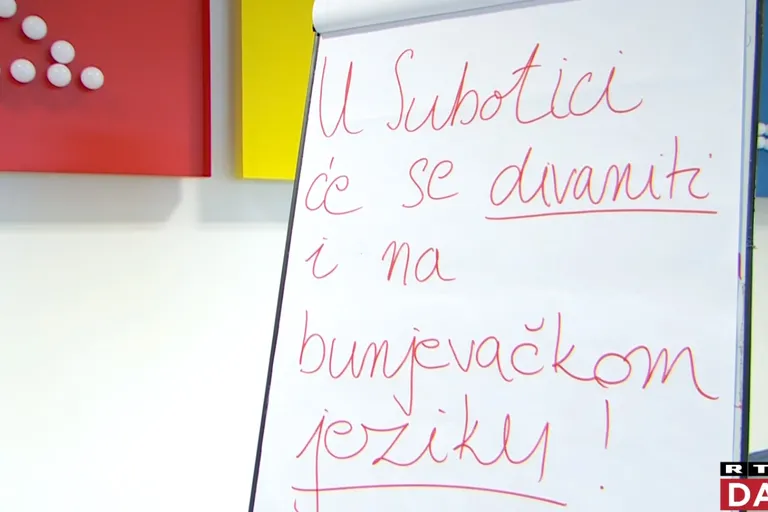 U Subotici
će se divaniti
i na
bunjevačkom
jeziku!
RT
DA